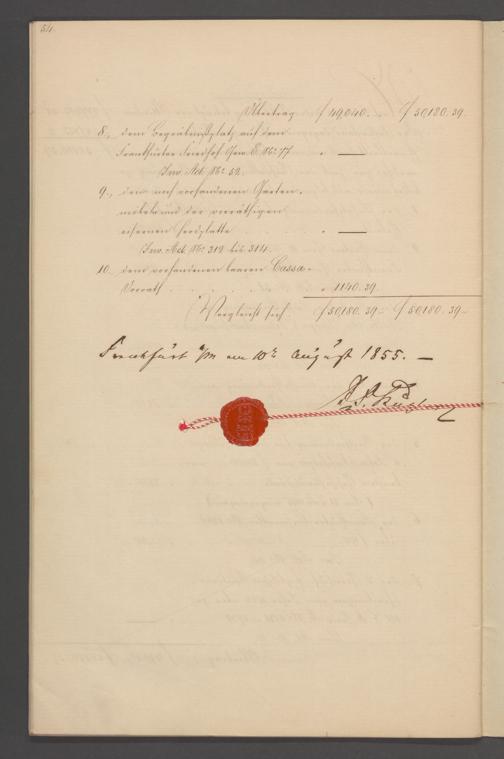 54.
Übertrag f 49,040. „ f 50,180. 39.
8., dem Begräbnißplatz auf dem
Frankfurter Friedhof Gew. No. 77 „ —
Inv. Act. No. 52.
9., den noch vorhandenen Garten-
möbeln und der vorräthigen
eisernen Herdplatte „ —
Inv. Act. No. 312 bis 314.
10. dem vorhandenen baaren Cassa-
Vorrath „ 1140. 39.
Vergleicht sich f 50,180. 39. f 50,180. 39.
Frankfurt a/M am 10ten August 1855. —